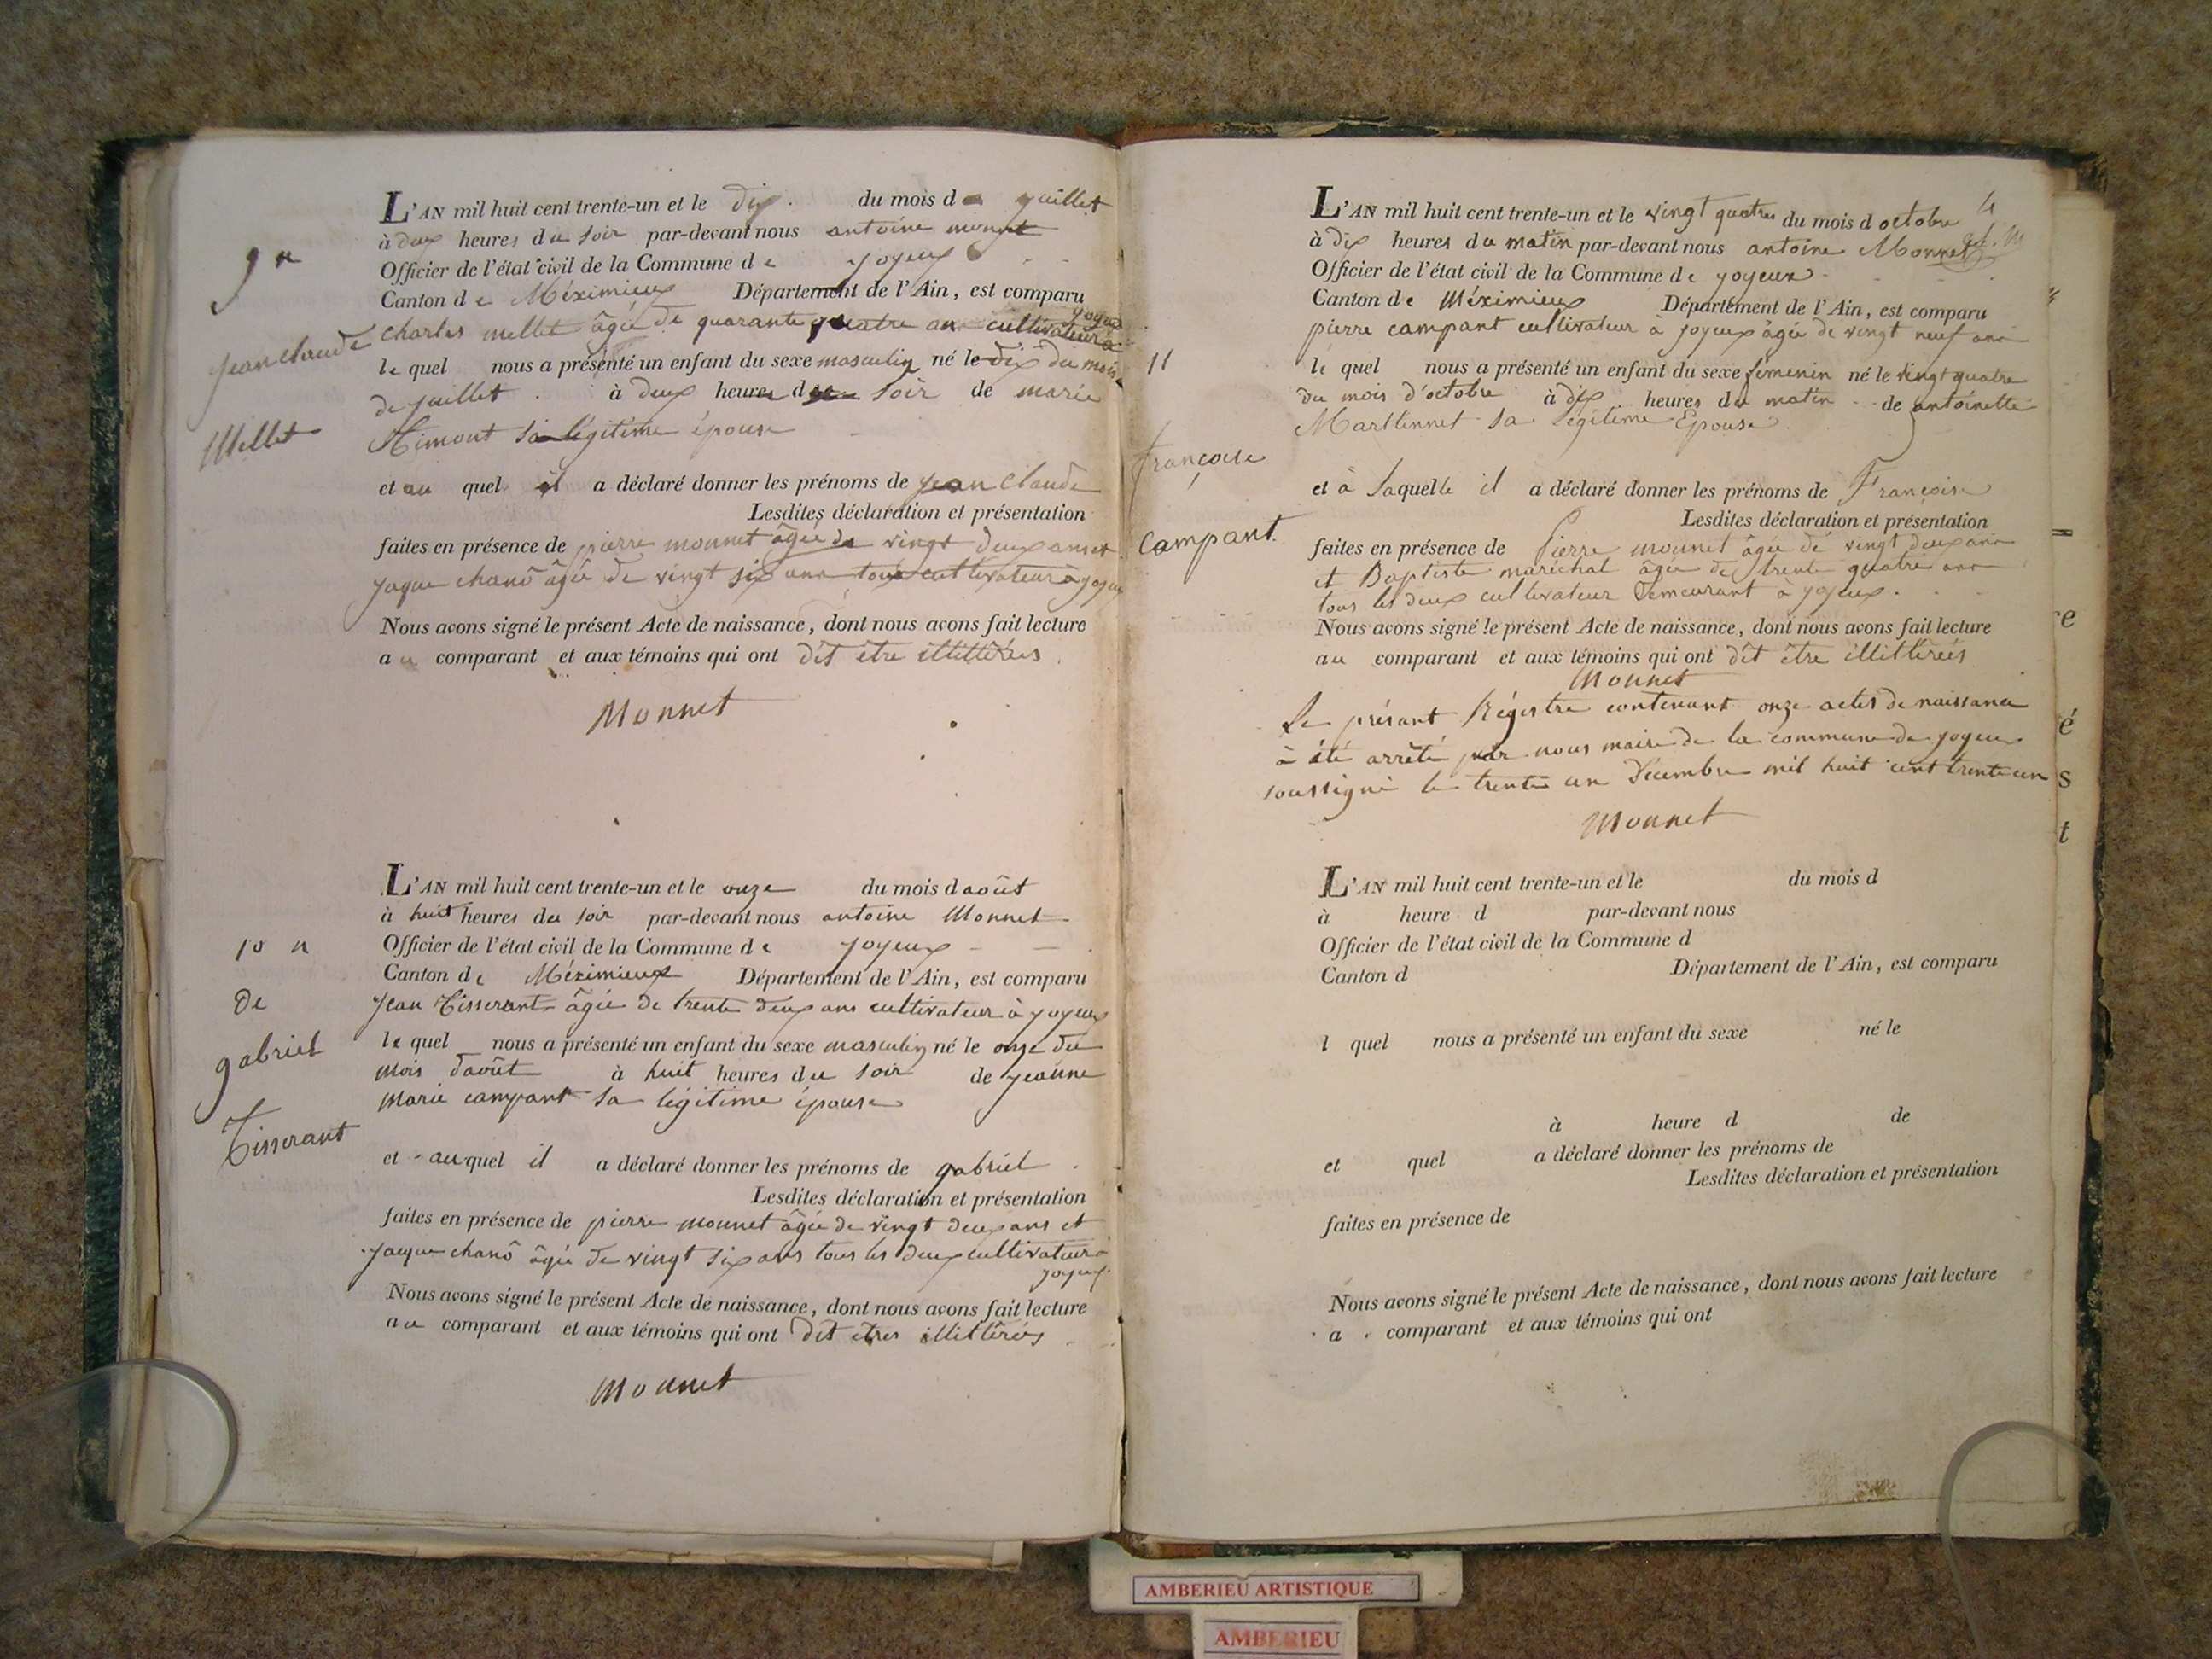 9 n
Jean Claude
Mellet
L'AN mil huit cent trente-un et le dix du mois de juillet
à deux heures du soir par-devant nous antoine monnet
Officier de l'état civil de la Commune de joyeux
Canton de Méximieux Département de l'Ain, est comparu
Charles mellet âgée de quarante quatre an cultivateur à joyeux
le quel nous a présenté un enfant du sexe masculin né le dix du mois
de juillet à deux heures du soir de marie
sa légitime épouse
et au quel il a déclaré donner les prénoms de jean Claude
Lesdites déclaration et présentation
faites en présence de pierre monnet âgée de vingt deux ans et
jaque chanô âgée de vingt six ans tous cultivateur à joyeux
Nous avons signé le présent Acte de naissance, dont nous avons fait lecture
au comparant et aux témoins qui ont dit être illittérés
Monnet
10 n
de
gabriel
Tisserant
L'AN mil huit cent trente-un et le onze du mois d août
à huit heures du soir par-devant nous antoine Monnet
Officier de l'état civil de la Commune de joyeux
Canton de Méximieux Département de l'Ain, est comparu
Jean Tisserant âgée de trente deux ans cultivateur à joyeux
le quel nous a présenté un enfant du sexe masculin né le onze du
mois d'août à huit heures du soir de jeanne
marie campant sa légitime épouse
et au quel il a déclaré donner les prénoms de gabriel
Lesdites déclaration et présentation
faites en présence de pierre monnet âgée de vingt deux ans et
jaque chanô âgée de vingt six ans tous les deux cultivateur à
joyeux
Nous avons signé le présent Acte de naissance, dont nous avons fait lecture
au comparant et aux témoins qui ont dit êtres illittérés
Monnet
4
11
françoise
Campant.
L'AN mil huit cent trente-un et le vingt quatres du mois d octobre
à dix heures du matin par-devant nous antoine Monnet
Officier de l'état civil de la Commune de joyeux
Canton de Méximieux Département de l'Ain, est comparu
pierre campant cultivateur à joyeux âgée de vingt neuf ans
le quel nous a présenté un enfant du sexe féminin né le vingt quatre
du mois d'octobre à dix heures du matin de antoinette
Marttinnet sa légitime Epouse
et à laquelle il a déclaré donner les prénoms de Françoise
Lesdites déclaration et présentation
faites en présence de Pierre monnet âgée de vingt deux ans
et Baptiste maréchal âgée de trente quatre ans
tous les deux cultivateur demeurant à joyeux.
Nous avons signé le présent Acte de naissance, dont nous avons fait lecture
au comparant et aux témoins qui ont dit être illittérées
Monnet
Le présant Régistre contenant onze actes de naissance
à été arrêté par nous maire de la commune de joyeux
soussigné le trente un Décembre mil huit cent trente un
Monnet
L'AN mil huit cent trente-un et le du mois d
à heure d par-devant nous
Officier de l'état civil de la Commune d
Canton d Département de l'Ain, est comparu
l quel nous a présenté un enfant du sexe né le
à heure d de
et quel a déclaré donner les prénoms de
Lesdites déclaration et présentation
faites en présence de
Nous avons signé le présent Acte de naissance, dont nous avons fait lecture
a comparant et aux témoins qui ont
re
é
s
t
AMBERIEU ARTISTIQUE
AMBERIEU